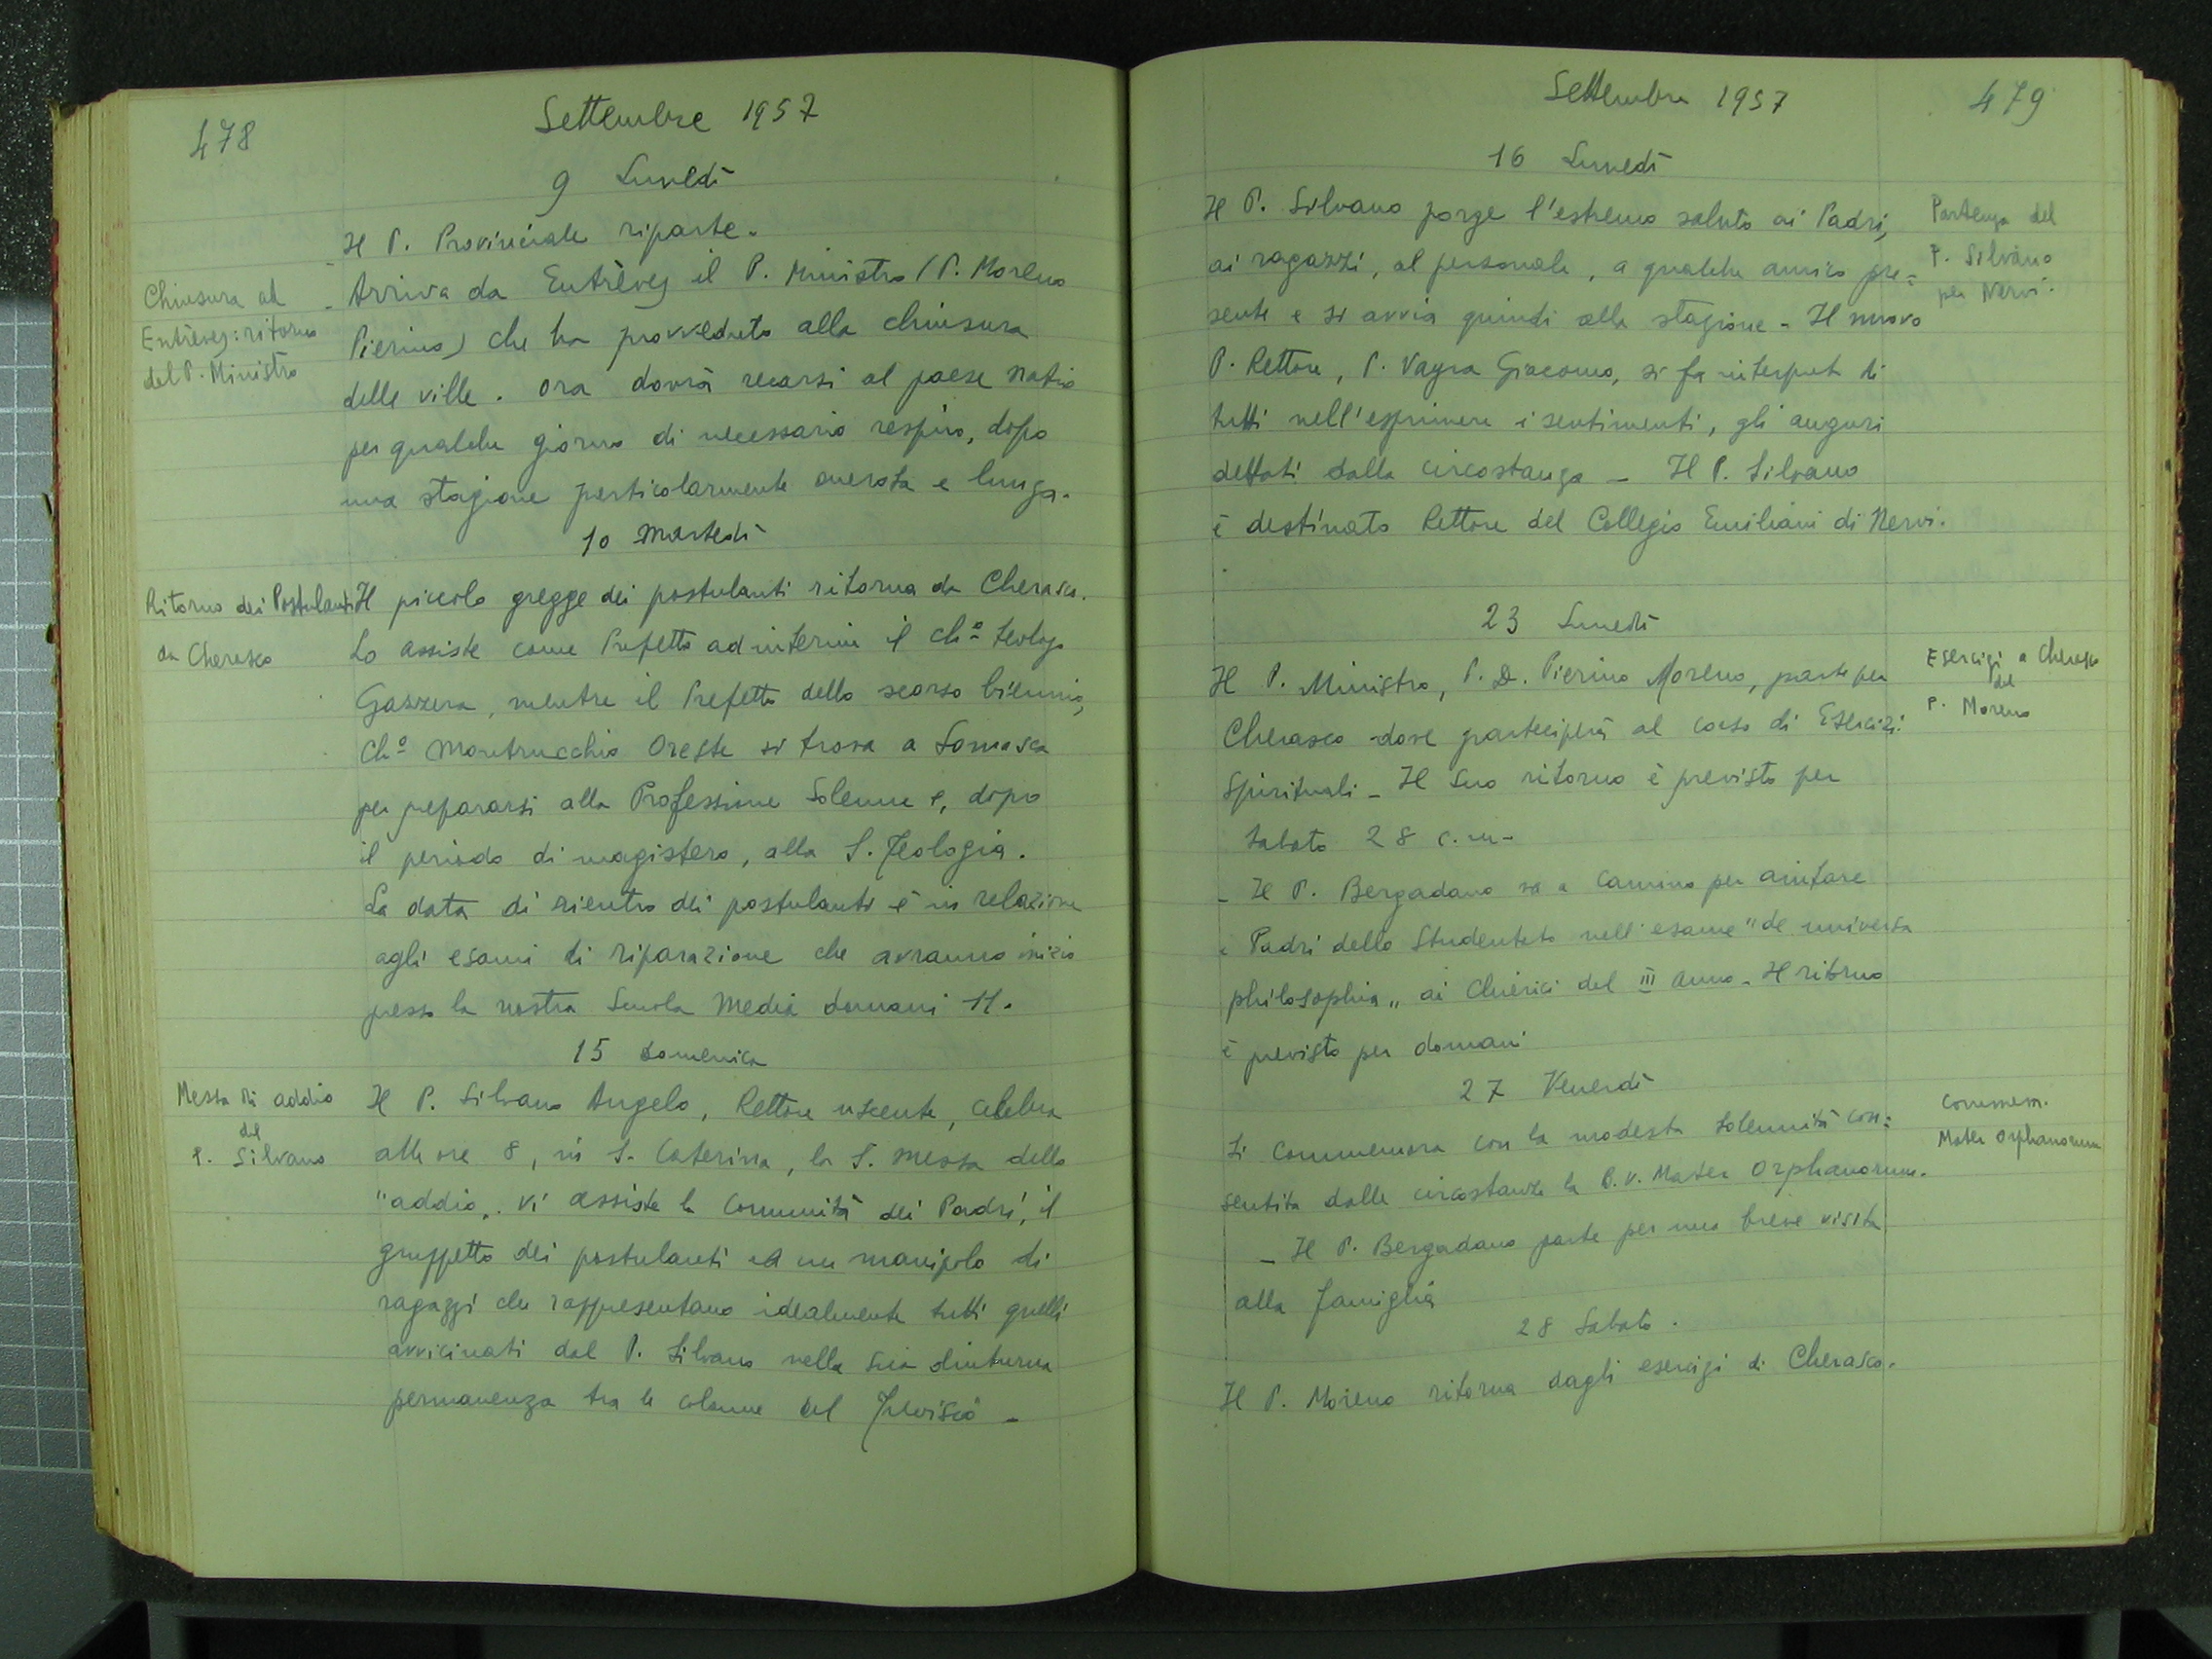 478
Settembre 1957
9 Lunedì
Il P. Provinciale riparte.
Chiusura ad
Entrèves: ritorno
del P. Ministro
- Arriva da Entrèves il P. Ministro (P. Moreno
Pierino) che ha provveduto alla chiusura
delle ville. Ora dovrà recarsi al paese natio
per qualche giorno di necessario respiro, dopo
una stagione particolarmente onerosa e lunga.
10 Martedì
Ritorno dei Postulanti
da Cherasco
Il piccolo gregge dei postulanti ritorna da Cherasco.
Lo assiste come Prefetto ad interim il Ch.º teologo
Gazzera, mentre il Prefetto dello scorso biennio,
Ch.º Montrucchio Oreste si trova a Somasca
per prepararsi alla Professione Solenne e, dopo
il periodo di magistero, alla S. Teologia.
La data di rientro dei postulanti è in relazione
agli esami di riparazione che avranno inizio
presso la nostra Scuola Media domani 11.
15 Domenica
Messa di addio
del
P. Silvano
Il P. Silvano Angelo, Rettore uscente, celebra
alle ore 8, in S. Caterina, la S. Messa dello
"addio„. Vi assiste la Comunità dei Padri, il
gruppetto dei postulanti ed un manipolo di
ragazzi che rappresentano idealmente tutti quelli
avvicinati dal P. Silvano nella sua diuturna
permanenza tra le colonne del Trevisio -
Settembre 1957
479
16 Lunedì
Il P. Silvano porge l'estremo saluto ai Padri,
ai ragazzi, al personale, a qualche amico pre=
sente e si avvia quindi alla stazione - Il nuovo
P. Rettore, P. Vayra Giacomo, si fa interprete di
tutti nell'esprimere i sentimenti, gli auguri
dettati dalla circostanza - Il P. Silvano
è destinato Rettore del Collegio Emiliani di Nervi.
Partenza del
P. Silvano
per Nervi.
23 Lunedì
Il P. Ministro, P. D. Pierino Moreno, parte per
Cherasco dove parteciperà al corso di Esercizi
Spirituali - Il suo ritorno è previsto per
Sabato 28 c.m.
Esercizi a Cherasco
del
P. Moreno
- Il P. Bergadano va a Camino per aiutare
i Padri dello Studentato nell'esame "de universa
philosophia„ ai Chierici del III anno - Il ritorno
è previsto per domani
27 Venerdì
Si commemora con la modesta solennità con=
sentita dalle circostanze la B.V. Mater Orphanorum.
Commem.
Mater Orphanorum
- Il P. Bergadano parte per una breve visita
alla famiglia
28 Sabato.
Il P. Moreno ritorna dagli esercizi di Cherasco.